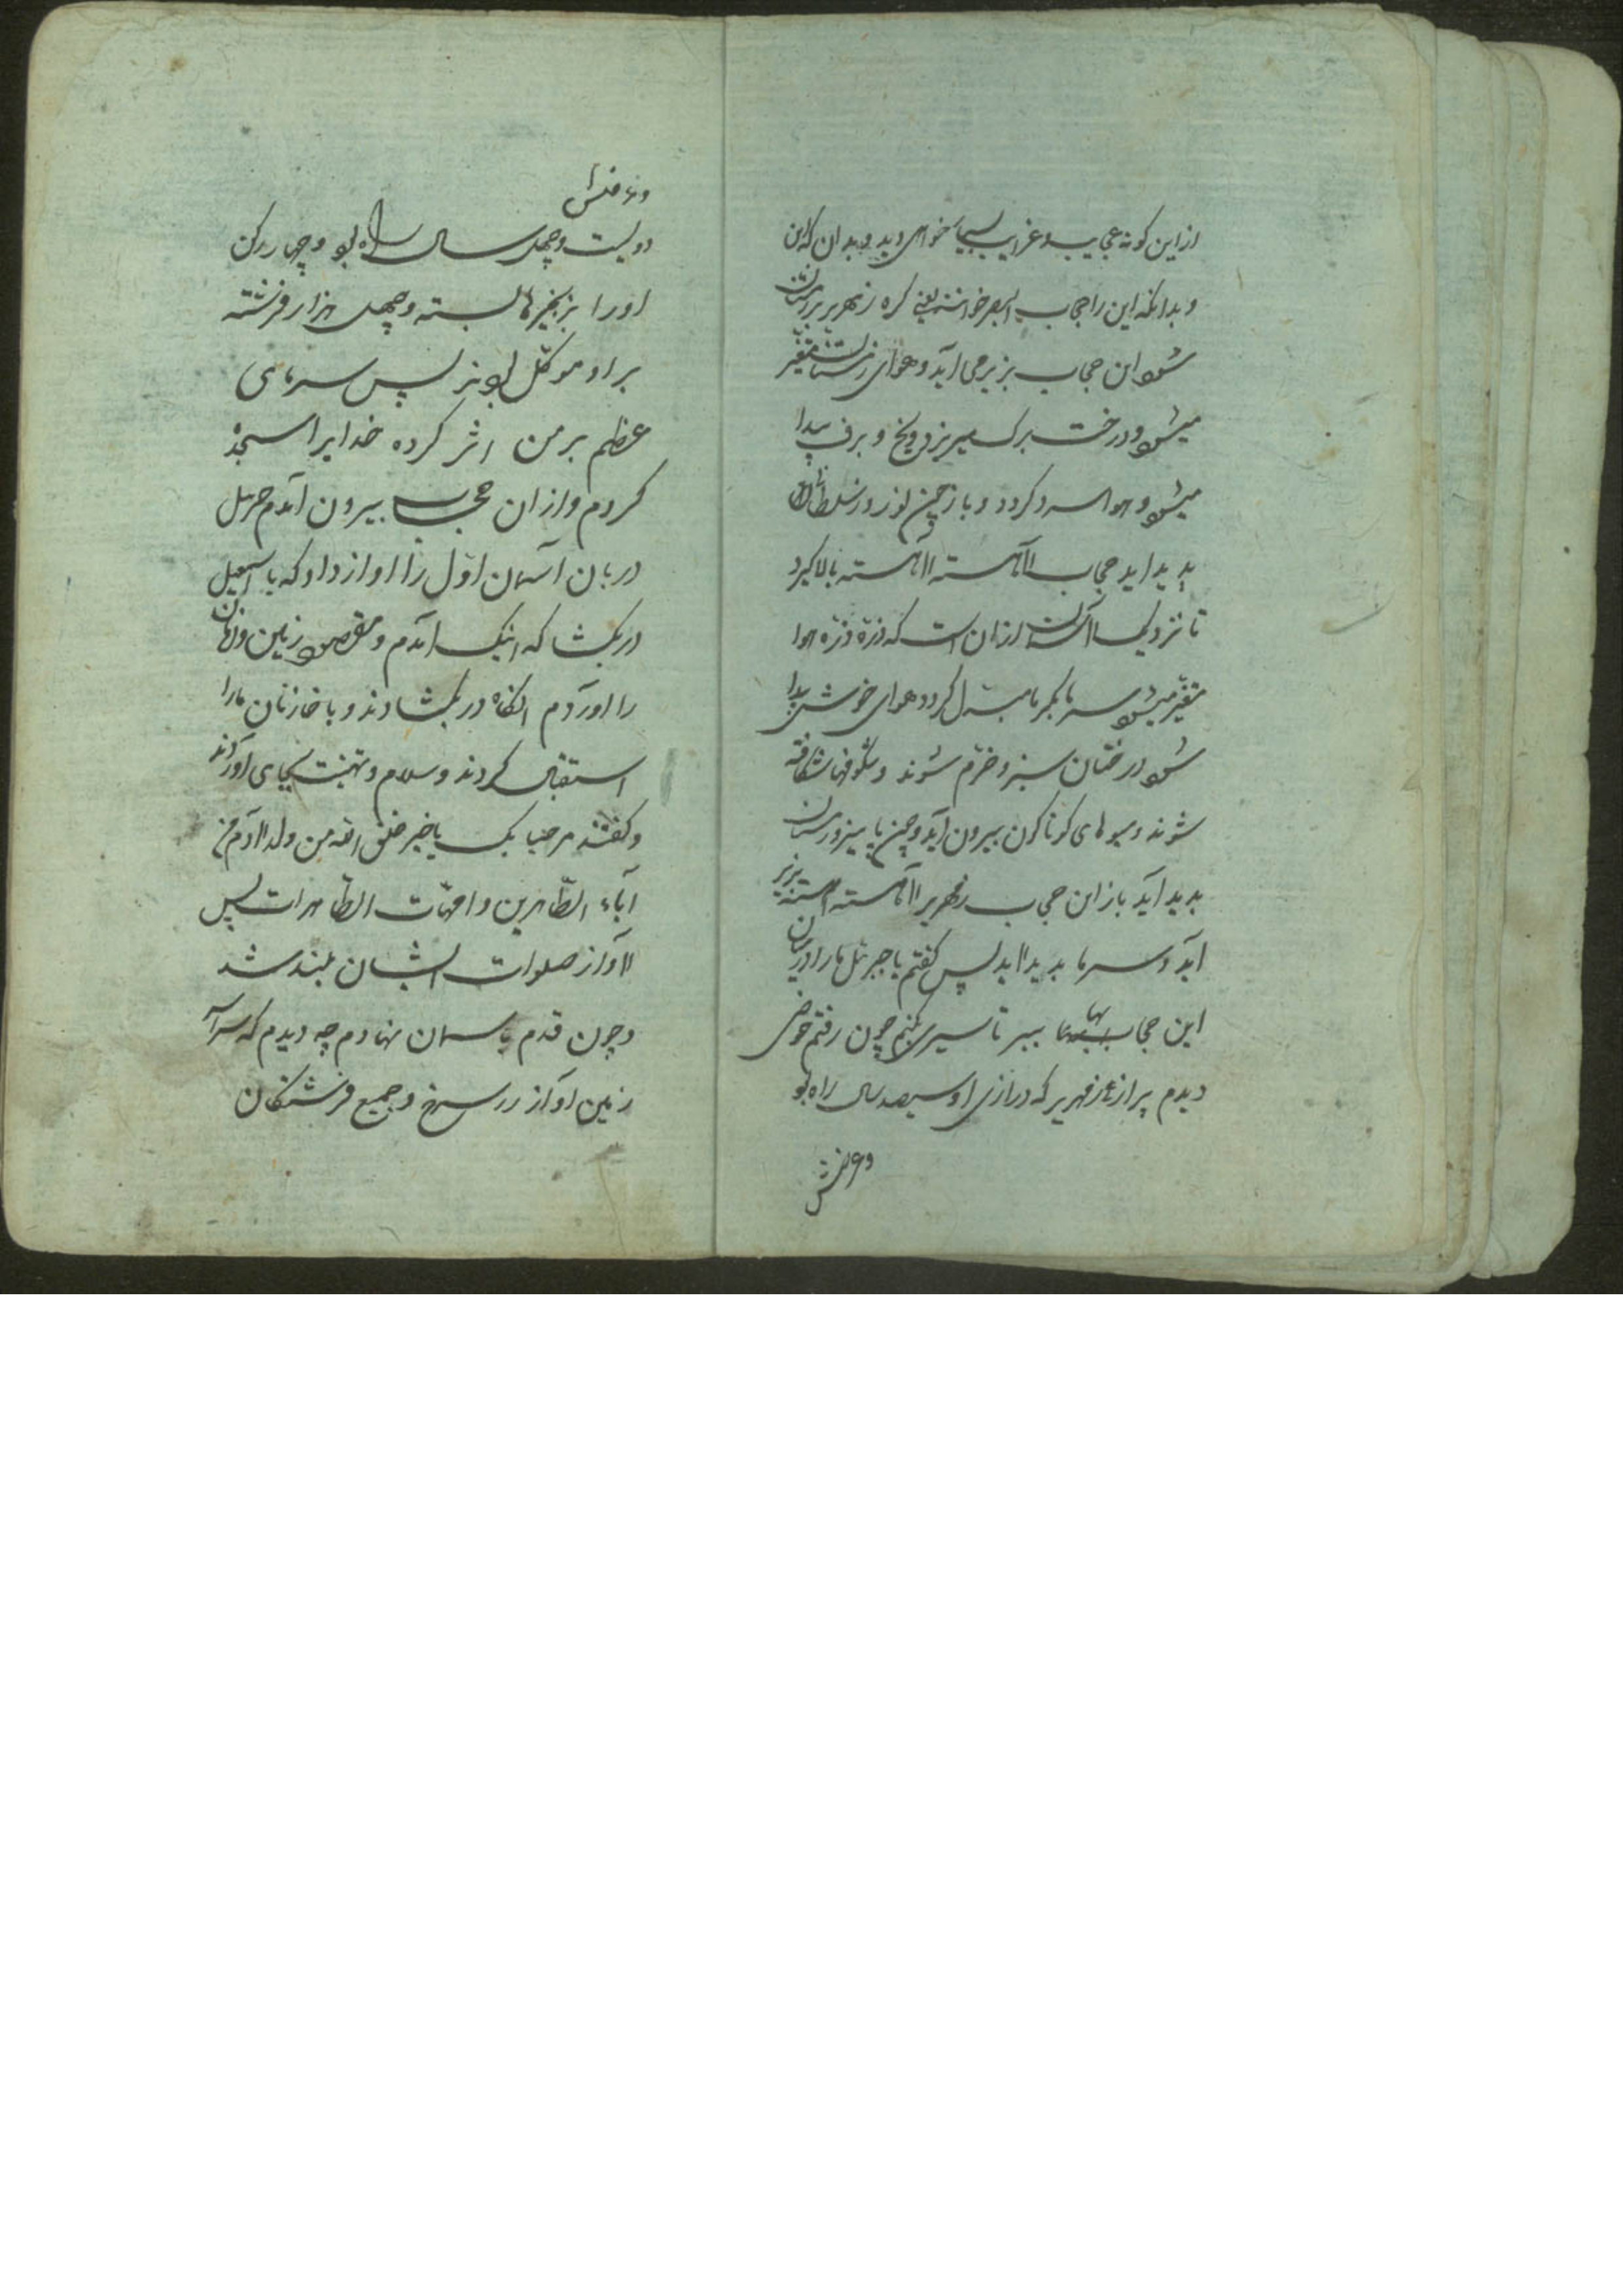 از این کونه عجایب و غرایب بسیار خواهی دید و بدان که این
و بدانکه این را حجاب خوانند یعنی کره زمهریر زمستان
شود این حجاب بزیر می آید و هوای زمستان متغیر
میشود و درخت برک میریزد و یخ و برف پیدا
میشود و هوا سرد کردد و باز چون نوروز سلطان
پدید اید حجاب آهسته آهسته بالا کیرد
تا نزدیک از آن است که ذره ذره هوا
متغیر میشود سرما بکرما مبدل کردد هوای خوش پیدا
شود درختان سبز و خرم شوند و شکوفها شکافته
شوند و میوهای کوناکون بیرون آید و چون پاییز و زمستان
پدید آید باز این حجاب زمهریر آهسته آهسته بزیر
آید و سرما پدید اید پس کفتم یا جبرئیل مارا در میان
این حجاب ببر تا سیری بکنم چون رفتم حوضی
دیدم پر از زمهریر که درازی او سیصد سال راه بود
و عرضش
و عرضش
دویست و چهل سال راه بود و چهار رکن
اورا بزنجیرها بسته و چهل هزار فرشته
بر او موکل بودند پس سرمای
عظیم بر من اثر کرده خدایرا سجده
کردم و از ان حجاب بیرون آمدم جبرئیل
دربان آسمان اول را اواز داد که یا اسمعیل
در بکشا که اینک آمدم و مقصود زمین و زمان
را اوردم انکاه در بکشادند و با خازنان مارا
استقبال کردند و سلام و تهنیت بجای اوردند
و کفتند مرحبا بک یا خیر خلق الله من ولد آدم من
آباء الطاهرین و امهات الطاهرات پس
آواز صلوات ایشان بلند شد
و چون قدم باسمان نهادم چه دیدم که سراسر
زمین او از زر سرخ و جمیع فرشتکان